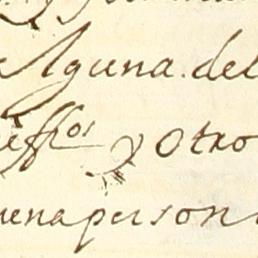 Alguna del
effos y Otro
uenaperson